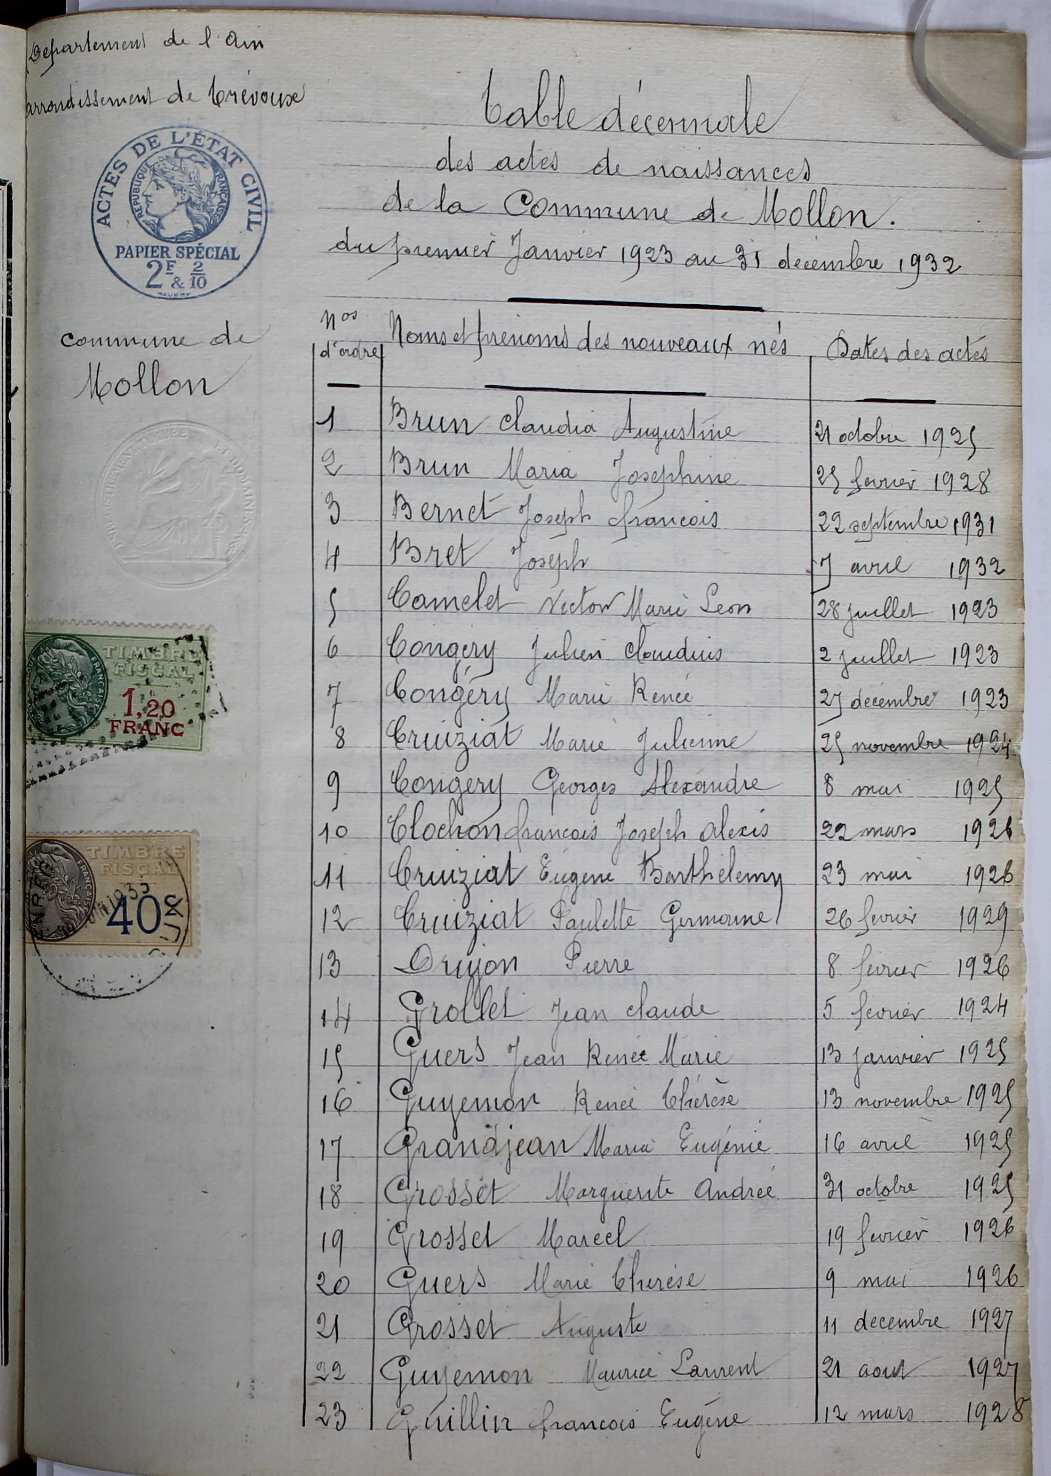 Département de l'Ain
arrondissement de Trévoux
ACTES DE L'ÉTAT CIVIL
RÉPUBLIQUE FRANÇAISE
PAPIER SPÉCIAL
2F & 2/10
Commune de
Mollon
TIMBRE
FISCAL
1,20
FRANC
TIMBRE
FISCAL
40c
1933
Table décennale
des actes de naissances
de la Commune de Mollon.
du premier Janvier 1923 au 31 décembre 1932
Nos d'ordre Noms et prénoms des nouveaux nés Dates des actes
1 Brun Claudia Augustine 21 octobre 1925
2 Brun Maria Josephine 25 fevrier 1928
3 Bernet Joseph françois 22 septembre 1931
4 Bret Joseph 7 avril 1932
5 Camelet Victor Marie Leon 28 juillet 1923
6 Congéry Julien Claudius 2 juillet 1923
7 Congéry Marie Renée 27 décembre 1923
8 Cruiziat Marie Julienne 25 novembre 1924
9 Congery Georges Alexandre 8 mai 1925
10 Clochon francois Joseph Alexis 22 mars 1926
11 Cruiziat Eugène Barthélemy 23 mai 1926
12 Cruiziat Paulette Germaine 26 fevrier 1929
13 Drujon Pierre 8 fevrier 1926
14 Grollet Jean Claude 5 fevrier 1924
15 Guers Jean Renée Marie 13 janvier 1925
16 Guyemon Renée Thérèse 13 novembre 1925
17 Grandjean Maria Eugénie 16 avril 1925
18 Grosset Marguerite Andrée 31 octobre 1925
19 Grosset Marcel 19 fevrier 1926
20 Guers Marie Therèse 9 mai 1926
21 Grosset Auguste 11 decembre 1927
22 Guyemon Maurice Laurent 21 aout 1927
23 Guillin francois Eugène 12 mars 1928